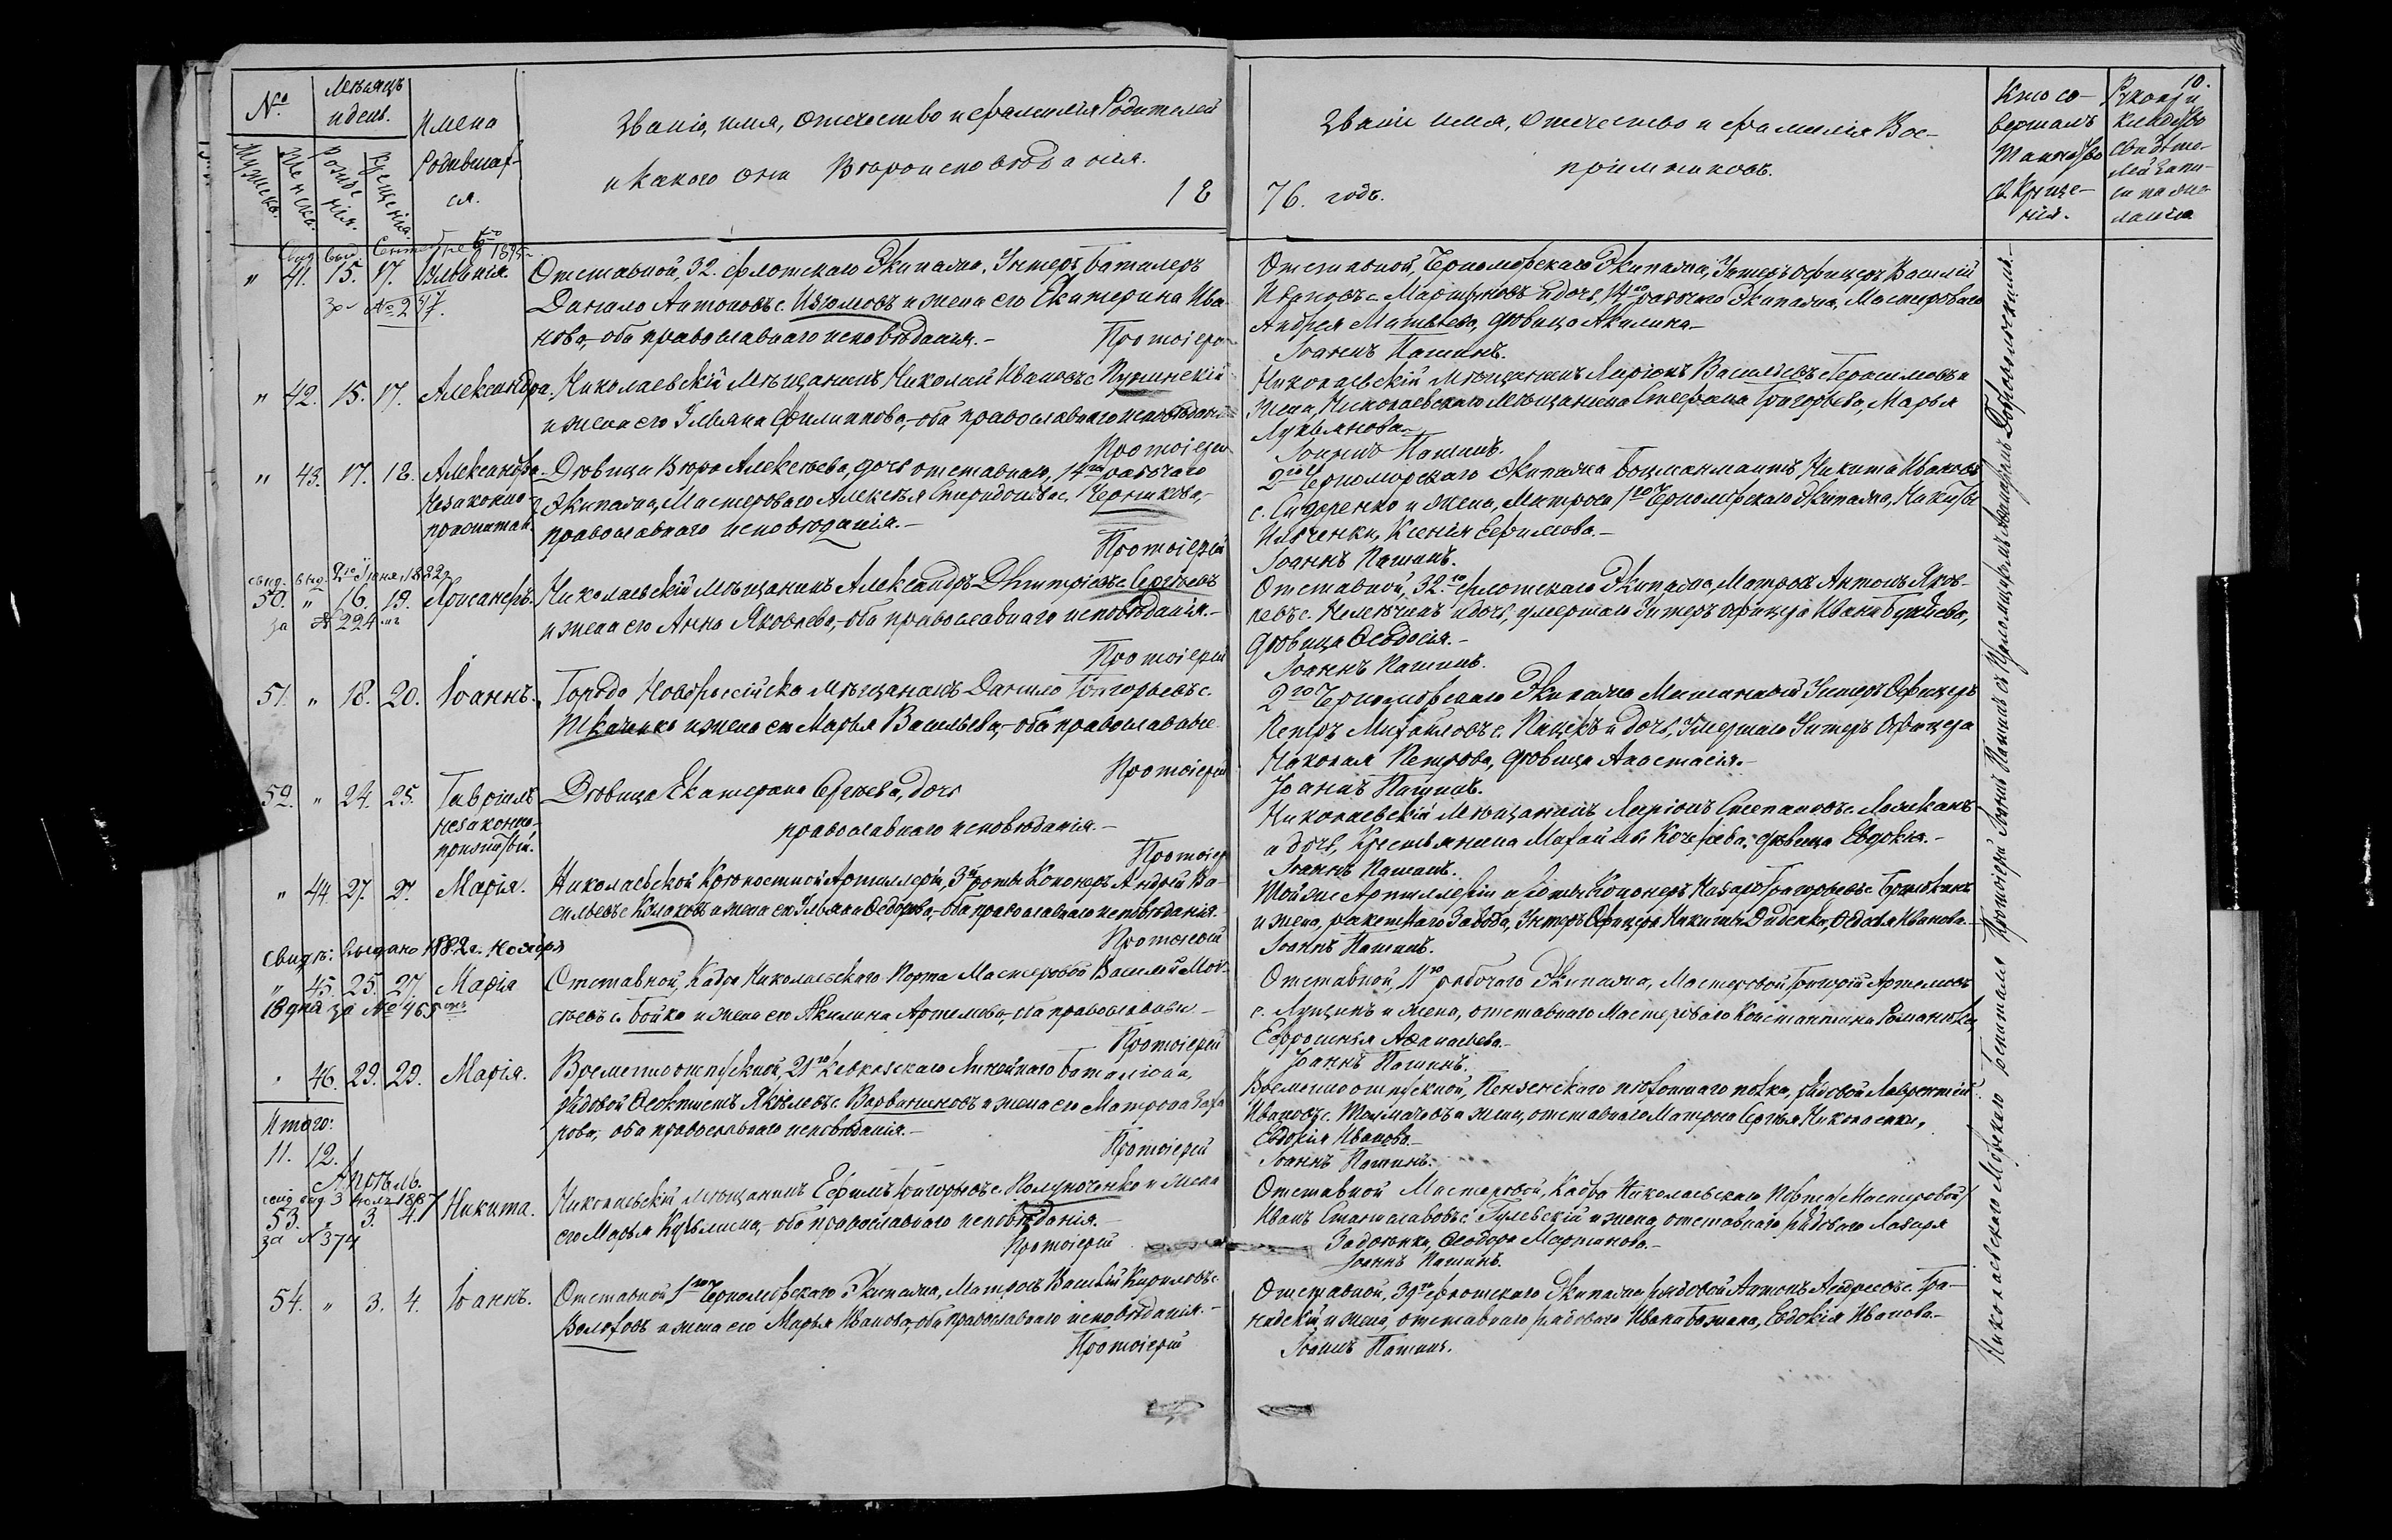 10.
№
Мѣсяцъ
и день.
Имена
Родившаг-
ся.
Мужеск.
Женска.
Рожде
нія.
Крещенія.
Званіе, имя, отечество и фамилія Родителей
и какого они Вѣроисповѣданія.
18
Званіе имя, отечество и фамилія Вос-
пріемниковъ.
76. годъ.
Кто со-
вершалъ
Таинство
Св. Креще-
нія.
Рукопри
кладство
свидѣте-
лей запи-
си по же-
ланію
Свид. выд. Сентября 1895 г.
" 41. 15. 17. Евгенія. Отставной, 32. флотскаго Экипажа, Унтеръ баталеръ
за № 247.
Данило Антоновъ с. Изюмовъ и жена его Екатерина Ива-
нова, оба православнаго исповѣданія.-
Протоіерей
Отставной, Черноморскаго Экипажа, Унтеръ офицеръ Василій
Ивановъ с. Мартыновъ и дочь, 14го рабочаго Экипажа, Мастероваго
Андрея Матвѣева, дѣвица Акилина-
Іоаннъ Пашинъ.
" 42. 15. 17. Александра. Николаевскій Мѣщанинъ Николай Ивановъ с.
и жена его Ульяна Филиппова,- оба православнаго исповѣданія
Протоіерей
Николаевскій Мѣщанинъ Ларіонъ Васильевъ с. Герасимовъ и
жена, Николаевскаго Мѣщанина Стефана Григорьева, Марья
Лукьянова.
Іоаннъ Пашинъ.
" 43. 17. 18. Александра. Дѣвица Вѣра Алексѣева, дочь отставнаго, 14го рабочаго
Незаконно-
прижитая.
Экипажа, Мастероваго Алексѣя Спиридонова с. Черникова,-
православнаго исповѣданія.-
Протоіерей
2го Черноморскаго Экипажа Боцманматъ Никита Ивановъ
с. Сидоренко и жена, Матроса 1го Черноморскаго Экипажа, Никиты
Ильченки, Ксенія Ефимова.-
Іоаннъ Пашинъ.
свид. выд. 2го Іюня 1892 г.
50. " 16. 19. Александръ. Николаевскій Мѣщанинъ Александръ Дмитріевъ с. Сергѣевъ
за № 224
и жена его Анна Яковлева,- оба православнаго исповѣданія.-
Протоіерей
Отставной, 32.го флотскаго Экипажа, Матросъ Антонъ Яков-
левъ с. и дочь, умершаго Унтеръ офицера Ивана
дѣвица Ѳеодосія.-
Іоаннъ Пашинъ.
51. " 18. 20. Іоаннъ. Города Новороссійска Мѣщанинъ Данило Григорьевъ с.
Ткаченко и жена его Марья Васильева,- оба православные.
Протоіерей
2го Черноморскаго Экипажа Машинный Унтеръ Офицеръ
Петръ Михайловъ с. и дочь, Умершаго Унтеръ Офицера
Николая Петрова, дѣвица Анастасія.-
Іоаннъ Пашинъ.
52. " 24. 25. Гавріилъ Дѣвица Екатерина Сергѣева, дочь
незаконно-
прижитый.
православнаго исповѣданія.-
Протоіерей
Николаевскій Мѣщанинъ Ларіонъ Степановъ с.
и дочь, Крестьянина Михайлы дѣвица Евдокія.-
Іоаннъ Пашинъ.
" 44. 27. 27. Марія. Николаевской Крѣпостной Артиллеріи, 3й роты Канонеръ Андрей Ва-
сильевъ с. Колаковъ и жена его Ульяна Ѳедорова,- оба православнаго исповѣданія.
Протоіерей
Той же Артиллеріи и роты Канонеръ Назаръ Григорьевъ с.
и жена, ракетнаго завода, Унтеръ Офицера Никиты Диденка, Ѳедосья Иванова.-
Іоаннъ Пашинъ.
Свидѣ: выдано 1882 г. Ноября
" 45. 25. 27. Марія Отставной, Кадра Николаевскаго Порта Мастеровой Василій Мои-
18 дня за № 465
сѣевъ с. Бойко и жена его Акилина Артемова,- оба православные
Протоіерей
Отставной, 11го рабочаго Экипажа, Мастеровой Григорій Артемовъ
с. Лущикъ и жена, отставнаго Мастероваго Константина Романюка,
Ефросинья Аѳанасьева.-
Іоаннъ Пашинъ.
" 46. 29. 29. Марія. Временноотпускной, 21го Кавказскаго Линейнаго баталіона,
рядовой Ѳеоктистъ Яковлевъ с. Варваниновъ и жена его Матрона Заха
рова, оба православнаго исповѣданія.-
Протоіерей
Временноотпускной, Пензенскаго пѣхотнаго полка, рядовой Лаврентій
Ивановъ с. Толмачовъ и жена, отставнаго Матроса Сергѣя Николаенки,
Евдокія Иванова.-
Іоаннъ Пашинъ.
Итого:
11. 12.
Апрѣль.
свид. выд. 3 1887
53. " 3. 4. Никита. Николаевскій Мѣщанинъ Ефимъ Григорьевъ с. Полуноченко и жена
за № 374
его Марья Кузьмина,- оба православнаго исповѣданія.-
Протоіерей
Отставной Мастеровой, Кадра Николаевскаго Порта /Мастеровой/
Иванъ Станиславовъ с. Гулевскій и жена отставнаго рядоваго Лазаря
Ѳеодора Мартинова.-
Іоаннъ Пашинъ.
54. " 3. 4. Іоаннъ. Отставной 1го Черноморскаго Экипажа, Матросъ Василій Кириловъ с.
Волоховъ и жена его Марья Иванова, оба православнаго исповѣданія.-
Протоіерей
Отставной, 39го флотскаго Экипажа рядовой Антонъ Андреевъ с. Гра-
надскій и жена отставнаго рядоваго Ивана Божана, Евдокія Иванова.-
Іоаннъ Пашинъ.
Николаевскаго Морскаго Госпиталя Протоіерей Іоаннъ Пашинъ съ Псаломщикомъ Добровольскимъ.-